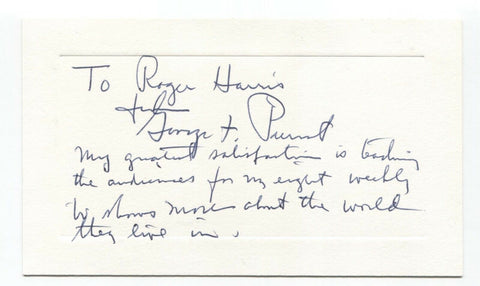 To Roger Harris
George F. Pierrot
My greatest satisfaction is teaching
the audiences for my eight weekly
tv shows more about the world
they live in.